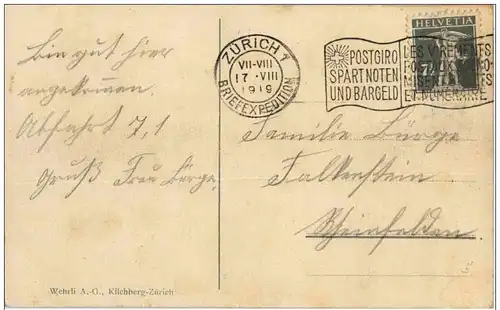 Bin gut hier
angekommen.
Abfahrt 7,1
Gruß Frau Bürge.
Wehrli A.-G., Kilchberg-Zürich
ZÜRICH 1
VII-VIII
17.VIII
1919
BRIEFEXPEDITION
POSTGIRO
SPART NOTEN
UND BARGELD
LES VIREMENTS
POSTAUX
ET NUMÉRAIRE
HELVETIA
7½
Familie Bürge
Falkenstein
Rheinfelden